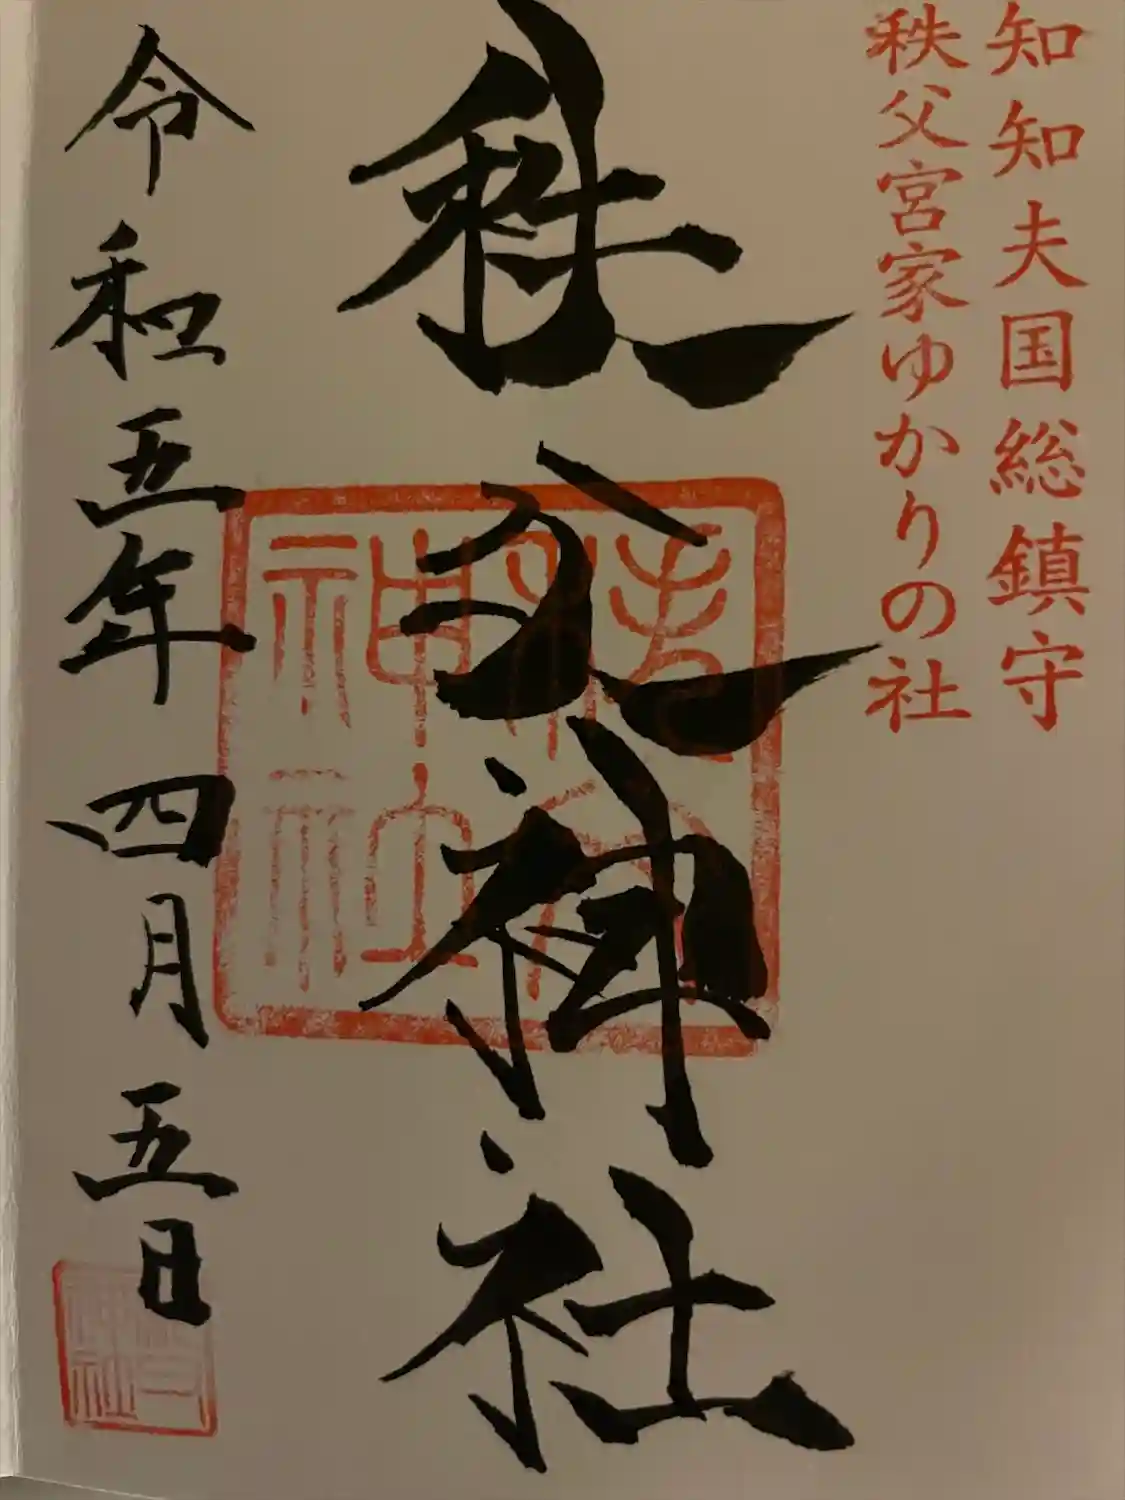 知知夫国総鎮守
秩父宮家ゆかりの社
秩父神社
令和五年四月五日
秩父神社